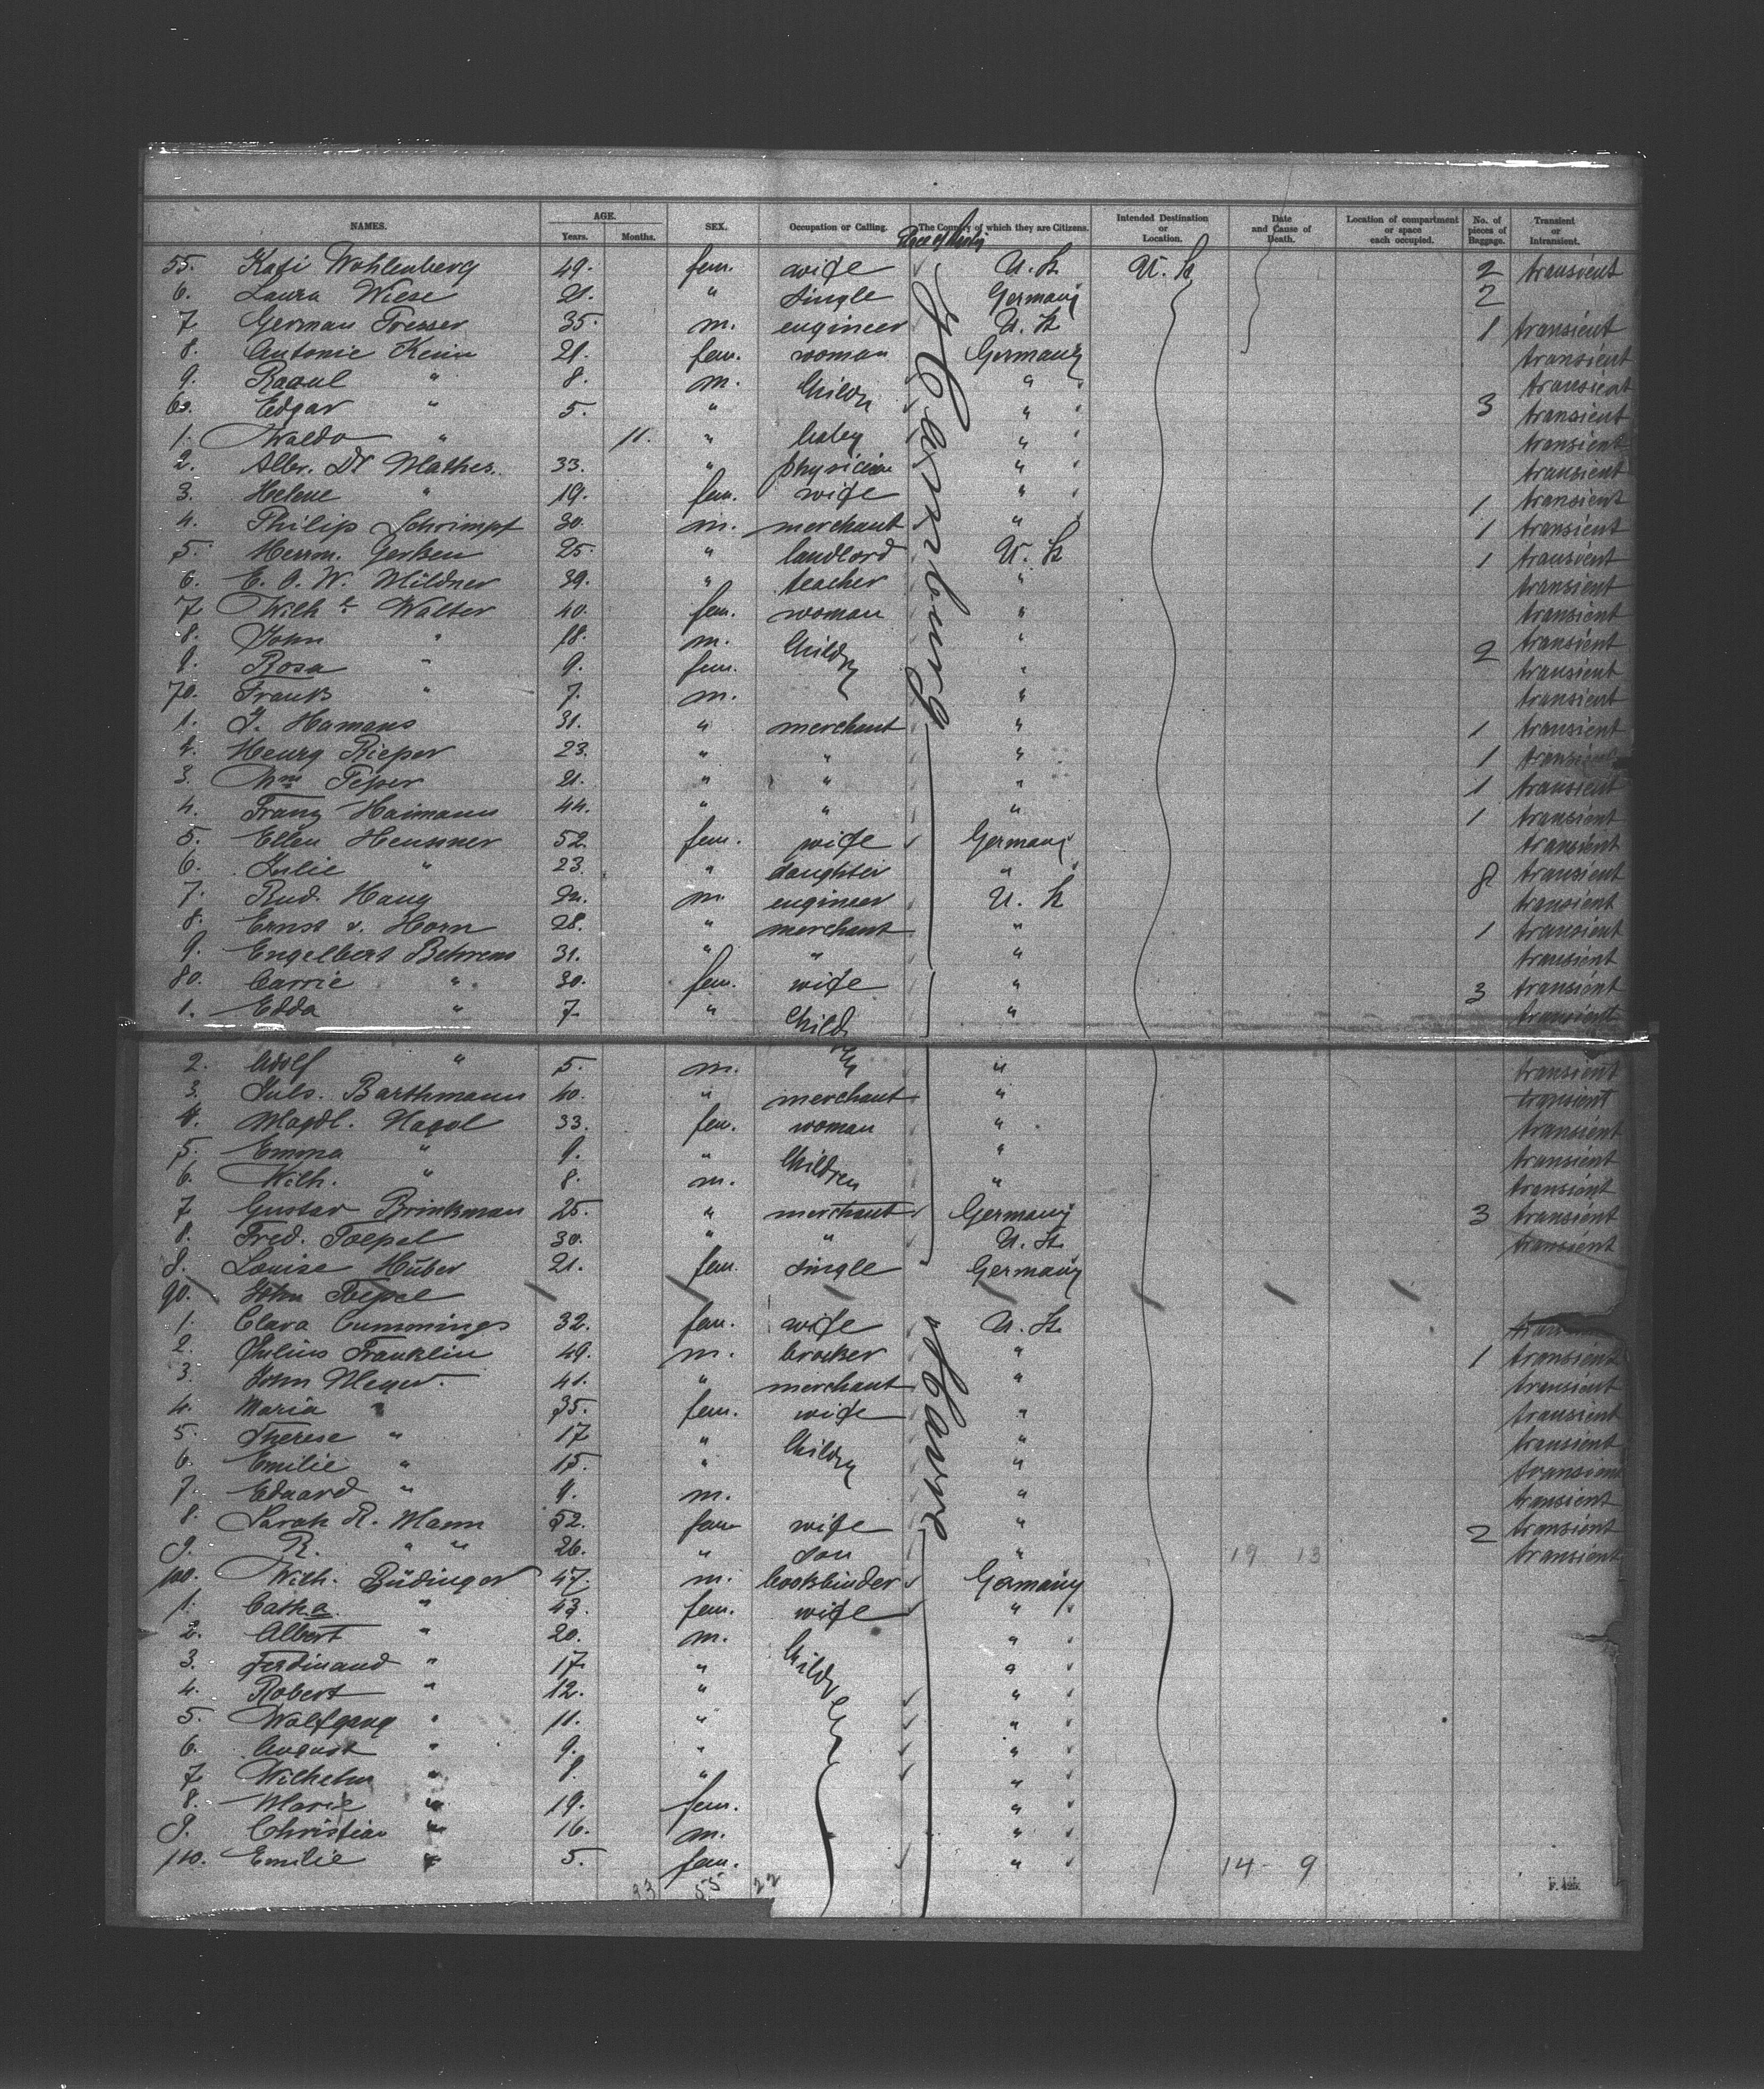 NAMES. AGE. Years. Months. SEX. Occupation or Calling. The Country of which they are Citizens. Intended Destination or Location. Date and Cause of Death. Location of compartment or space each occupied. No. of pieces of Baggage. Transient or Intransient.
55. Kati Wohlenberg 49. fem. wife U. St. U. St 2 transient
6. Laura Wiese 21. " single Germany 2
7. German Tresser 35. m. engineer U. St 1 transient
8. Antonie Kevin 21. fem. woman Germany transient
9. Raoul " 8. m. Childr " transient
60. Edgar " 5. " " 3 transient
1. Waldo " 11. " baby " transient
2. Albr. Dr Mathes. 33. " physician " transient
3. Helene " 19. fem. wife " 1 transient
4. Philip Schrimpf 30. m. merchant " 1 transient
5. Herrm. Gerken 25. " landlord U. St 1 transient
6. E. O. W. Mildner 39. " teacher " transient
7. Wilh e Walter 40. fem. woman " transient
8. John " 18. m. Childr " 2 transient
9. Rosa " 9. fem. " transient
70. Frank " 7. m. " transient
1. J. Hamans 31. " merchant " 1 transient
2. Henry Rieper 23. " " " 1 transient
3. Wm Peper 21. " " " 1 transient
4. Franz Haimann 44. " " " 1 transient
5. Ellen Heusner 52. fem. wife Germany transient
6. Julie " 23. " daughter " 8 transient
7. Rud. Haug m. engineer U. St transient
8. Ernst v. Horn 28. " merchant " 1 transient
9. Engelbert Behrens 31. " " " transient
80. Carrie " 30. fem. wife " 3 transient
1. Edda " 7. " Children " transient
2. Adolf " 5. m. " transient
3. Juls. Barthmann 40. " merchant " transient
4. Magdl. Nagel 33. fem. woman " transient
5. Emma " 9. " Children " transient
6. Wilh. " 8. m. " transient
7. Gustav Brinkman 25. " merchant Germany 3 transient
8. Fred. Toepel 30. " " U. St. transient
9. Louise Huber 21. fem. single Germany
90. John Toepel
1. Clara Cummings 32. fem. wife U. St.
2. Julius Franklin 49. m. broker " 1 transient
3. John Meyer. 41. " merchant " transient
4. Maria " 35. fem. wife " transient
5. Therese " 17 " Childr " transient
6. Emilie " 15. " " transient
7. Eduard " 9. m. " transient
8. Sarah R. Mann 52. fem wife " 2 transient
9. R. " " 26. " son " 19 13 transient
100. Wilh. Büdinger 47. m. bookbinder Germany
1. Catha. " 43. fem. wife "
2. Albert " 20. m. Children "
3. Ferdinand " 17. " "
4. Robert " 12. " "
5. Wolfgang " 11. " "
6. August " 9. " "
7. Wilhelm " 8. " "
8. Marie " 19. fem. "
9. Christian " 16. m. "
110. Emilie " 5. fem. " 14 - 9
Hamburg
Havre
33 55 22